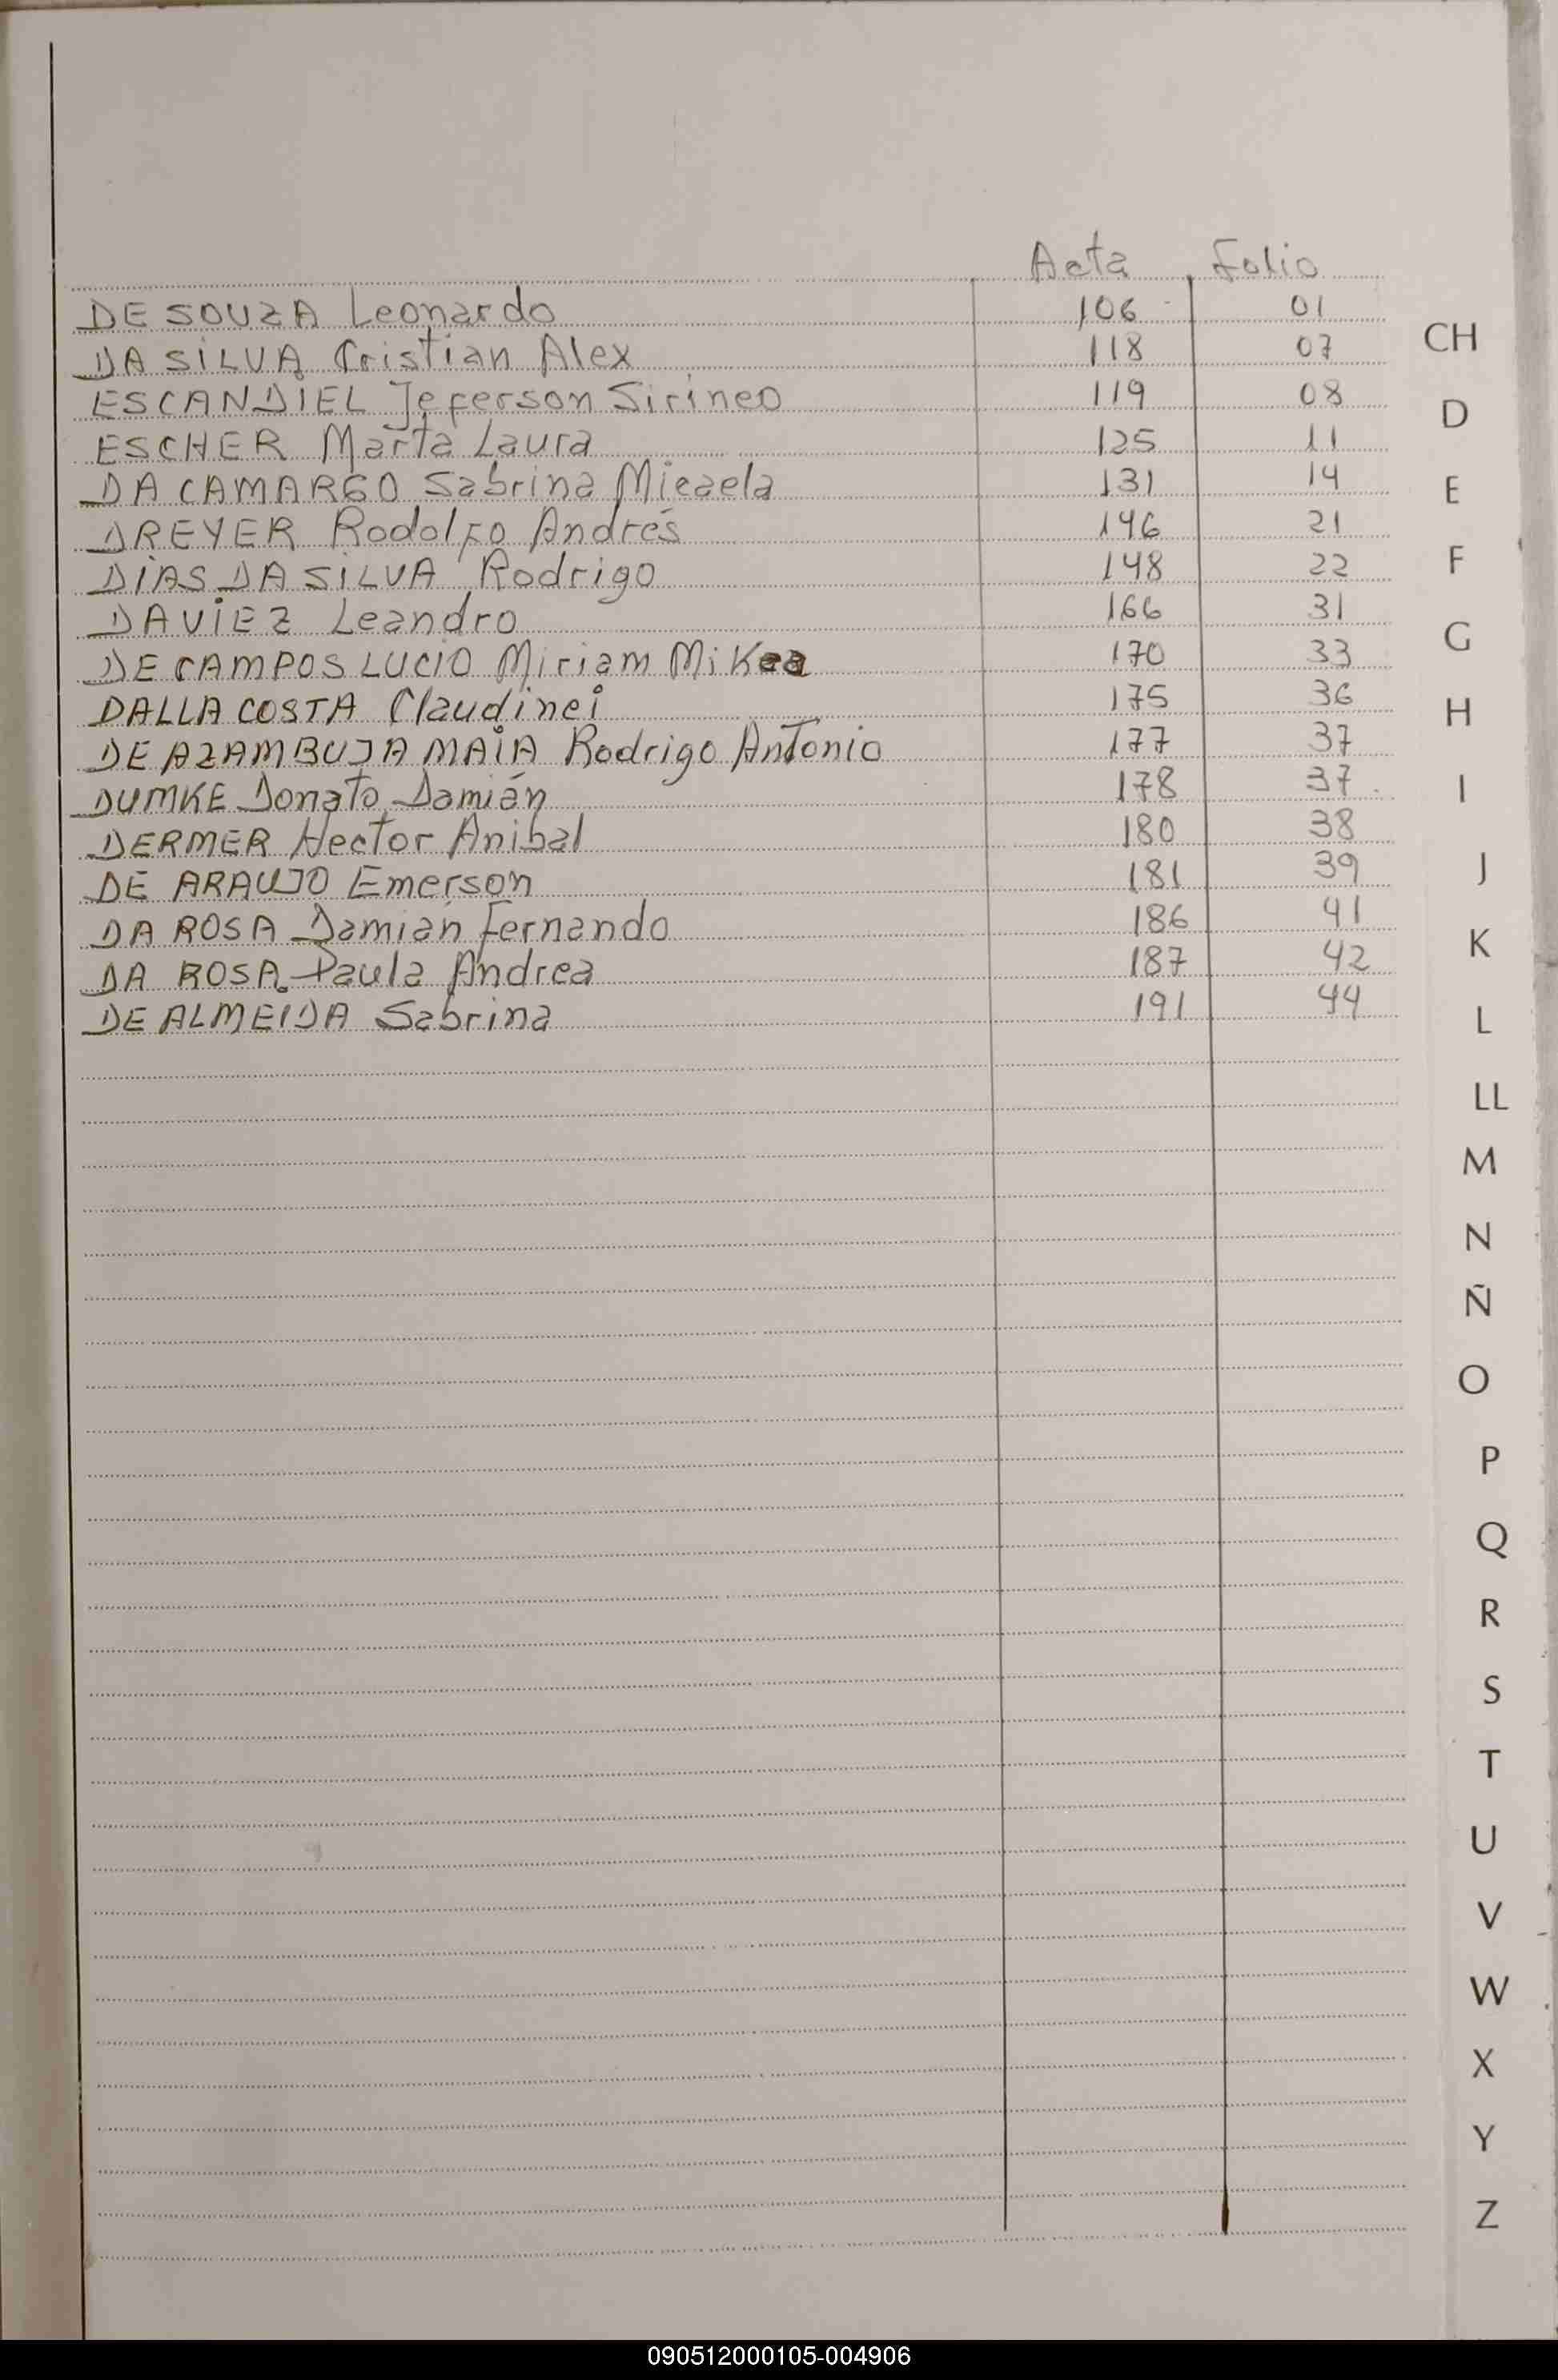 Acta Folio
DE SOUZA Leonardo 106 01
DA SILVA Cristian Alex 118 07
ESCANDIEL Jeferson Sirineo 119 08
ESCHER Marta Laura 125 11
DA CAMARGO Sabrina Micaela 131 14
DREYER Rodolfo Andrés 146 21
DIAS DA SILVA Rodrigo 148 22
DAVIEZ Leandro 166 31
DE CAMPOS LUCIO Miriam Mikea 170 33
DALLA COSTA Claudinei 175 36
DE AZAMBUJA MAIA Rodrigo Antonio 177 37
DUMKE Donato Damián 178 37
DERMER Hector Anibal 180 38
DE ARAUJO Emerson 181 39
DA ROSA Damian Fernando 186 41
DA ROSA Paula Andrea 187 42
DE ALMEIDA Sabrina 191 44
CH
D
E
F
G
H
I
J
K
L
LL
M
N
Ñ
O
P
Q
R
S
T
U
V
W
X
Y
Z
090512000105-004906